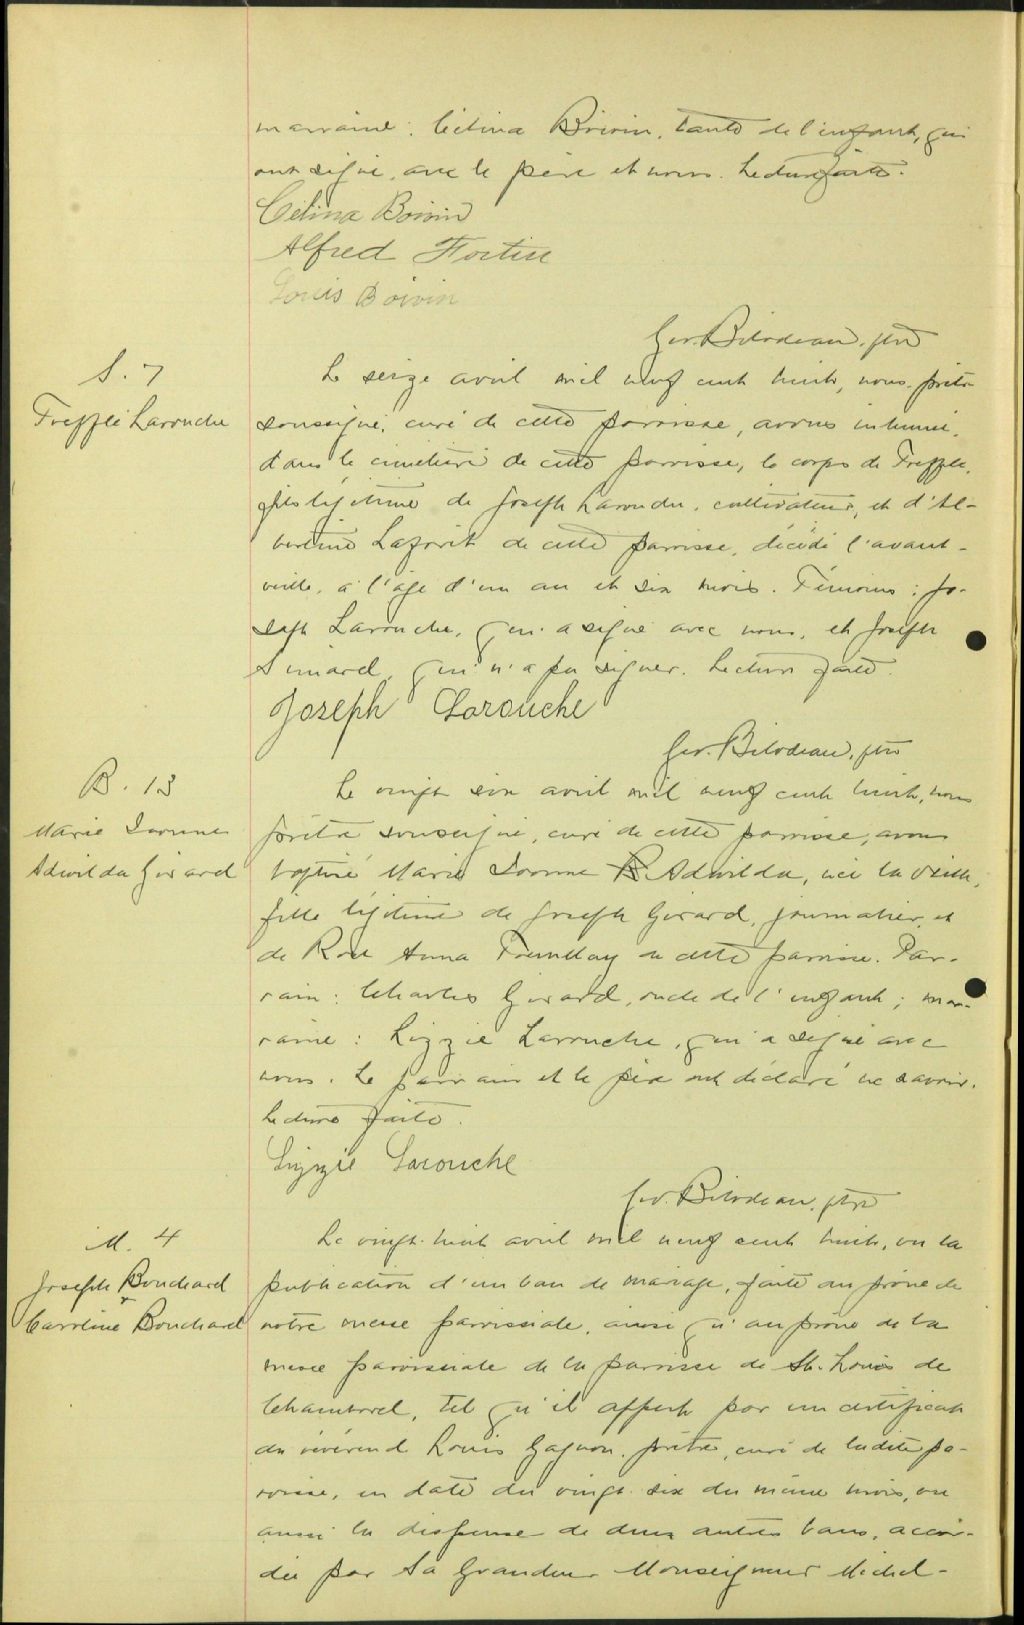 marraine: Célina Boivin, tante de l'enfant, qui
ont signé, avec le père et nous. Lecture faite.
Célina Boivin
Alfred Fortin
Louis Boivin
Geo. Bilodeau, ptre
S. 7
Trefflé Larouche
Le seize avril mil neuf cent huit, nous, prêtre
soussigné, curé de cette paroisse, avons inhumé,
dans le cimetière de cette paroisse, le corps de Trefflé,
fils légitime de Joseph Larouche, cultivateur, et d'Al-
bertine Laforêt de cette paroisse, décédé l'avant-
veille, à l'âge d'un an et six mois. Témoins: Jo-
seph Larouche, qui a signé avec nous, et Joseph
Simard, qui n'a pu signer. Lecture faite.
Joseph Larouche
Geo. Bilodeau, ptre
B. 13
Marie Ivonne
Adwilda Girard
Le vingt six avril mil neuf cent huit, nous
prêtre soussigné, curé de cette paroisse, avons
baptisé Marie Ivonne Adwilda, née la veille,
fille légitime de Joseph Girard, journalier, et
de Rose Anna Tremblay de cette paroisse. Par-
rain: Charles Girard, oncle de l'enfant; mar-
raine: Lizzie Larouche, qui a signé avec
nous. Le parrain et le père ont déclaré ne savoir.
Lecture faite.
Lizzie Larouche
Geo. Bilodeau, ptre
M. 4
Joseph Bouchard
&
Caroline Bouchard
Le vingt-huit avril mil neuf cent huit, vu la
publication d'un ban de mariage, faite au prône de
notre messe paroissiale, ainsi qu'au prône de la
messe paroissiale de la paroisse de St. Louis de
Chambord, tel qu'il appert par un certificat
du révérend Louis Gagnon, prêtre, curé de ladite pa-
roisse, en date du vingt-six du même mois, vu
aussi la dispense de deux autres bans, accor-
dée par Sa Grandeur Monseigneur Michel-